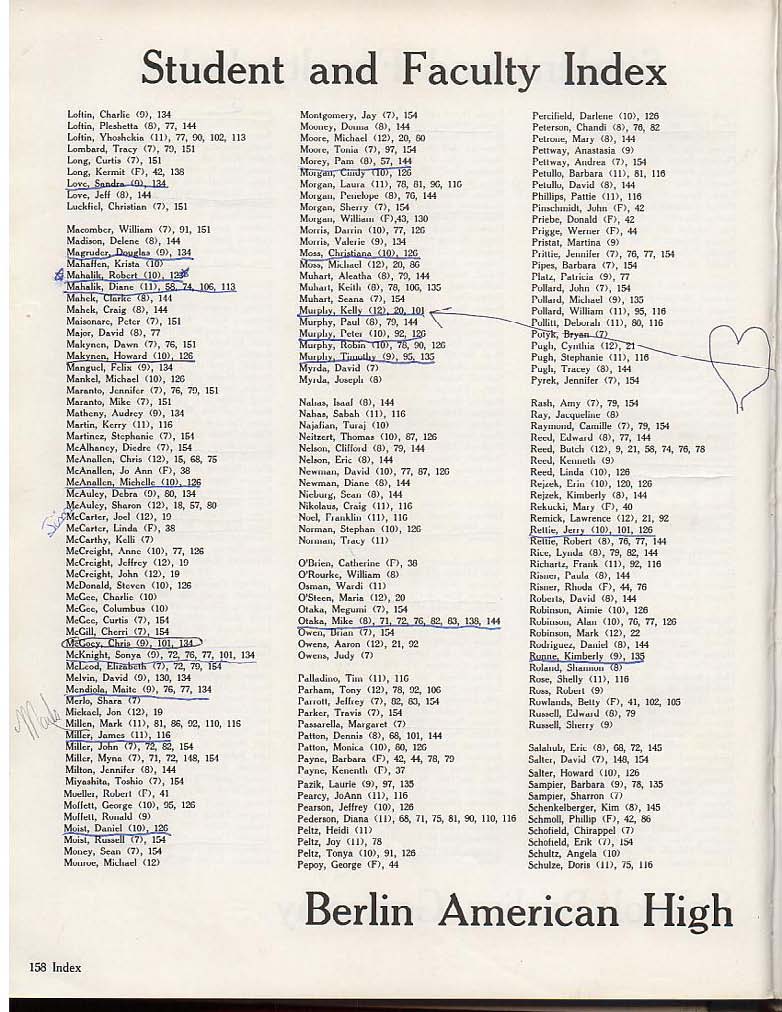 Student and Faculty Index
Loftin, Charlie (9), 134
Loftin, Pleshetta (8), 77, 144
Loftin, Yhoshekia (11), 77, 90, 102, 113
Lombard, Tracy (7), 79, 151
Long, Curtis (7), 151
Long, Kermit (F), 42, 138
Love, Sandra (9), 134
Love, Jeff (8), 144
Luckfiel, Christian (7), 151
Macomber, William (7), 91, 151
Madison, Delene (8), 144
Magruder, Douglas (9), 134
Mahaffen, Krista (10)
Mahalik, Robert (10), 123
Mahalik, Diane (11), 58, 74, 106, 113
Mahek, Clarke (8), 144
Mahek, Craig (8), 144
Maisonare, Peter (7), 151
Major, David (8), 77
Makynen, Dawn (7), 76, 151
Makynen, Howard (10), 126
Manguel, Felix (9), 134
Mankel, Michael (10), 126
Maranto, Jennifer (7), 76, 79, 151
Maranto, Mike (7), 151
Matheny, Audrey (9), 134
Martin, Kerry (11), 116
Martinez, Stephanie (7), 154
McAlhaney, Diedre (7), 154
McAnallen, Chris (12), 15, 68, 75
McAnallen, Jo Ann (F), 38
McAnallen, Michelle (10), 126
McAuley, Debra (9), 80, 134
McAuley, Sharon (12), 18, 57, 80
McCarter, Joel (12), 19
McCarter, Linda (F), 38
McCarthy, Kelli (7)
McCreight, Anne (10), 77, 126
McCreight, Jeffrey (12), 19
McCreight, John (12), 19
McDonald, Steven (10), 126
McGee, Charlie (10)
McGee, Columbus (10)
McGee, Curtis (7), 154
McGill, Cherri (7), 154
McGoey, Chris (9), 101, 134
McKnight, Sonya (9), 72, 76, 77, 101, 134
McLeod, Elizabeth (7), 72, 79, 154
Melvin, David (9), 130, 134
Mendiola, Maite (9), 76, 77, 134
Merlo, Shara (7)
Mickael, Jon (12), 19
Millen, Mark (11), 81, 86, 92, 110, 116
Miller, James (11), 116
Miller, John (7), 72, 82, 154
Miller, Myna (7), 71, 72, 148, 154
Milton, Jennifer (8), 144
Miyashita, Toshio (7), 154
Mueller, Robert (F), 41
Moffett, George (10), 95, 126
Moffett, Ronald (9)
Moist, Daniel (10), 126
Moist, Russell (7), 154
Money, Sean (7), 154
Monroe, Michael (12)
Montgomery, Jay (7), 154
Mooney, Donna (8), 144
Moore, Michael (12), 20, 80
Moore, Tonia (7), 97, 154
Morey, Pam (8), 57, 144
Morgan, Cindy (10), 126
Morgan, Laura (11), 78, 81, 96, 116
Morgan, Penelope (8), 76, 144
Morgan, Sherry (7), 154
Morgan, William (F),43, 130
Morris, Darrin (10), 77, 126
Morris, Valerie (9), 134
Moss, Christiana (10), 126
Moss, Michael (12), 20, 86
Muhart, Aleatha (8), 79, 144
Muhart, Keith (8), 78, 106, 135
Muhart, Seana (7), 154
Murphy, Kelly (12), 20, 101
Murphy, Paul (8), 79, 144
Murphy, Peter (10), 92, 126
Murphy, Robin (10), 78, 90, 126
Murphy, Timothy (9), 95, 135
Myrda, David (7)
Myrda, Joseph (8)
Nahas, Isaaf (8), 144
Nahas, Sabah (11), 116
Najafian, Turaj (10)
Neitzert, Thomas (10), 87, 126
Nelson, Clifford (8), 79, 144
Nelson, Eric (8), 144
Newman, David (10), 77, 87, 126
Newman, Diane (8), 144
Nieburg, Sean (8), 144
Nikolaus, Craig (11), 116
Noel, Franklin (11), 116
Norman, Stephan (10), 126
Norman, Tracy (11)
O'Brien, Catherine (F), 38
O'Rourke, William (8)
Osman, Wardi (11)
O'Steen, Maria (12), 20
Otaka, Megumi (7), 154
Otaka, Mike (8), 71, 72, 76, 82, 83, 138, 144
Owen, Brian (7), 154
Owens, Aaron (12), 21, 92
Owens, Judy (7)
Palladino, Tim (11), 116
Parham, Tony (12), 78, 92, 106
Parrott, Jeffrey (7), 82, 83, 154
Parker, Travis (7), 154
Passarella, Margaret (7)
Patton, Dennis (8), 68, 101, 144
Patton, Monica (10), 80, 126
Payne, Barbara (F), 42, 44, 78, 79
Payne, Kenenth (F), 37
Pazik, Laurie (9), 97, 135
Pearcy, JoAnn (11), 116
Pearson, Jeffrey (10), 126
Pederson, Diana (11), 68, 71, 75, 81, 90, 110, 116
Peltz, Heidi (11)
Peltz, Joy (11), 78
Peltz, Tonya (10), 91, 126
Pepoy, George (F), 44
Percifield, Darlene (10), 126
Peterson, Chandi (8), 76, 82
Petrone, Mary (8), 144
Pettway, Anastasia (9)
Pettway, Andrea (7), 154
Petullo, Barbara (11), 81, 116
Petullo, David (8), 144
Phillips, Pattie (11), 116
Pinschmidt, John (F), 42
Priebe, Donald (F), 42
Prigge, Werner (F), 44
Pristat, Martina (9)
Prittie, Jennifer (7), 76, 77, 154
Pipes, Barbara (7), 154
Platz, Patricia (9), 77
Pollard, John (7), 154
Pollard, Michael (9), 135
Pollard, William (11), 95, 116
Pollitt, Deborah (11), 80, 116
Potyk, Bryan (7)
Pugh, Cynthia (12), 21
Pugh, Stephanie (11), 116
Pugh, Tracey (8), 144
Pyrek, Jennifer (7), 154
Rash, Amy (7), 79, 154
Ray, Jacqueline (8)
Raymond, Camille (7), 79, 154
Reed, Edward (8), 77, 144
Reed, Butch (12), 9, 21, 58, 74, 76, 78
Reed, Kenneth (9)
Reed, Linda (10), 126
Rejzek, Erin (10), 120, 126
Rejzek, Kimberly (8), 144
Rekucki, Mary (F), 40
Remick, Lawrence (12), 21, 92
Rettie, Jerry (10), 101, 126
Rettie, Robert (8), 76, 77, 144
Rice, Lynda (8), 79, 82, 144
Richartz, Frank (11), 92, 116
Risner, Paula (8), 144
Risner, Rhoda (F), 44, 76
Roberts, David (8), 144
Robinson, Aimie (10), 126
Robinson, Alan (10), 76, 77, 126
Robinson, Mark (12), 22
Rodriguez, Daniel (8), 144
Ronne, Kimberly (9), 135
Roland, Shannon (8)
Rose, Shelly (11), 116
Ross, Robert (9)
Rowlands, Betty (F), 41, 102, 105
Russell, Edward (8), 79
Russell, Sherry (9)
Salahub, Eric (8), 68, 72, 145
Salter, David (7), 148, 154
Salter, Howard (10), 126
Sampier, Barbara (9), 78, 135
Sampier, Sharron (7)
Schenkelberger, Kim (8), 145
Schmoll, Phillip (F), 42, 86
Schofield, Chirappel (7)
Schofield, Erik (7), 154
Schultz, Angela (10)
Schulze, Doris (11), 75, 116
Berlin American High
158 Index